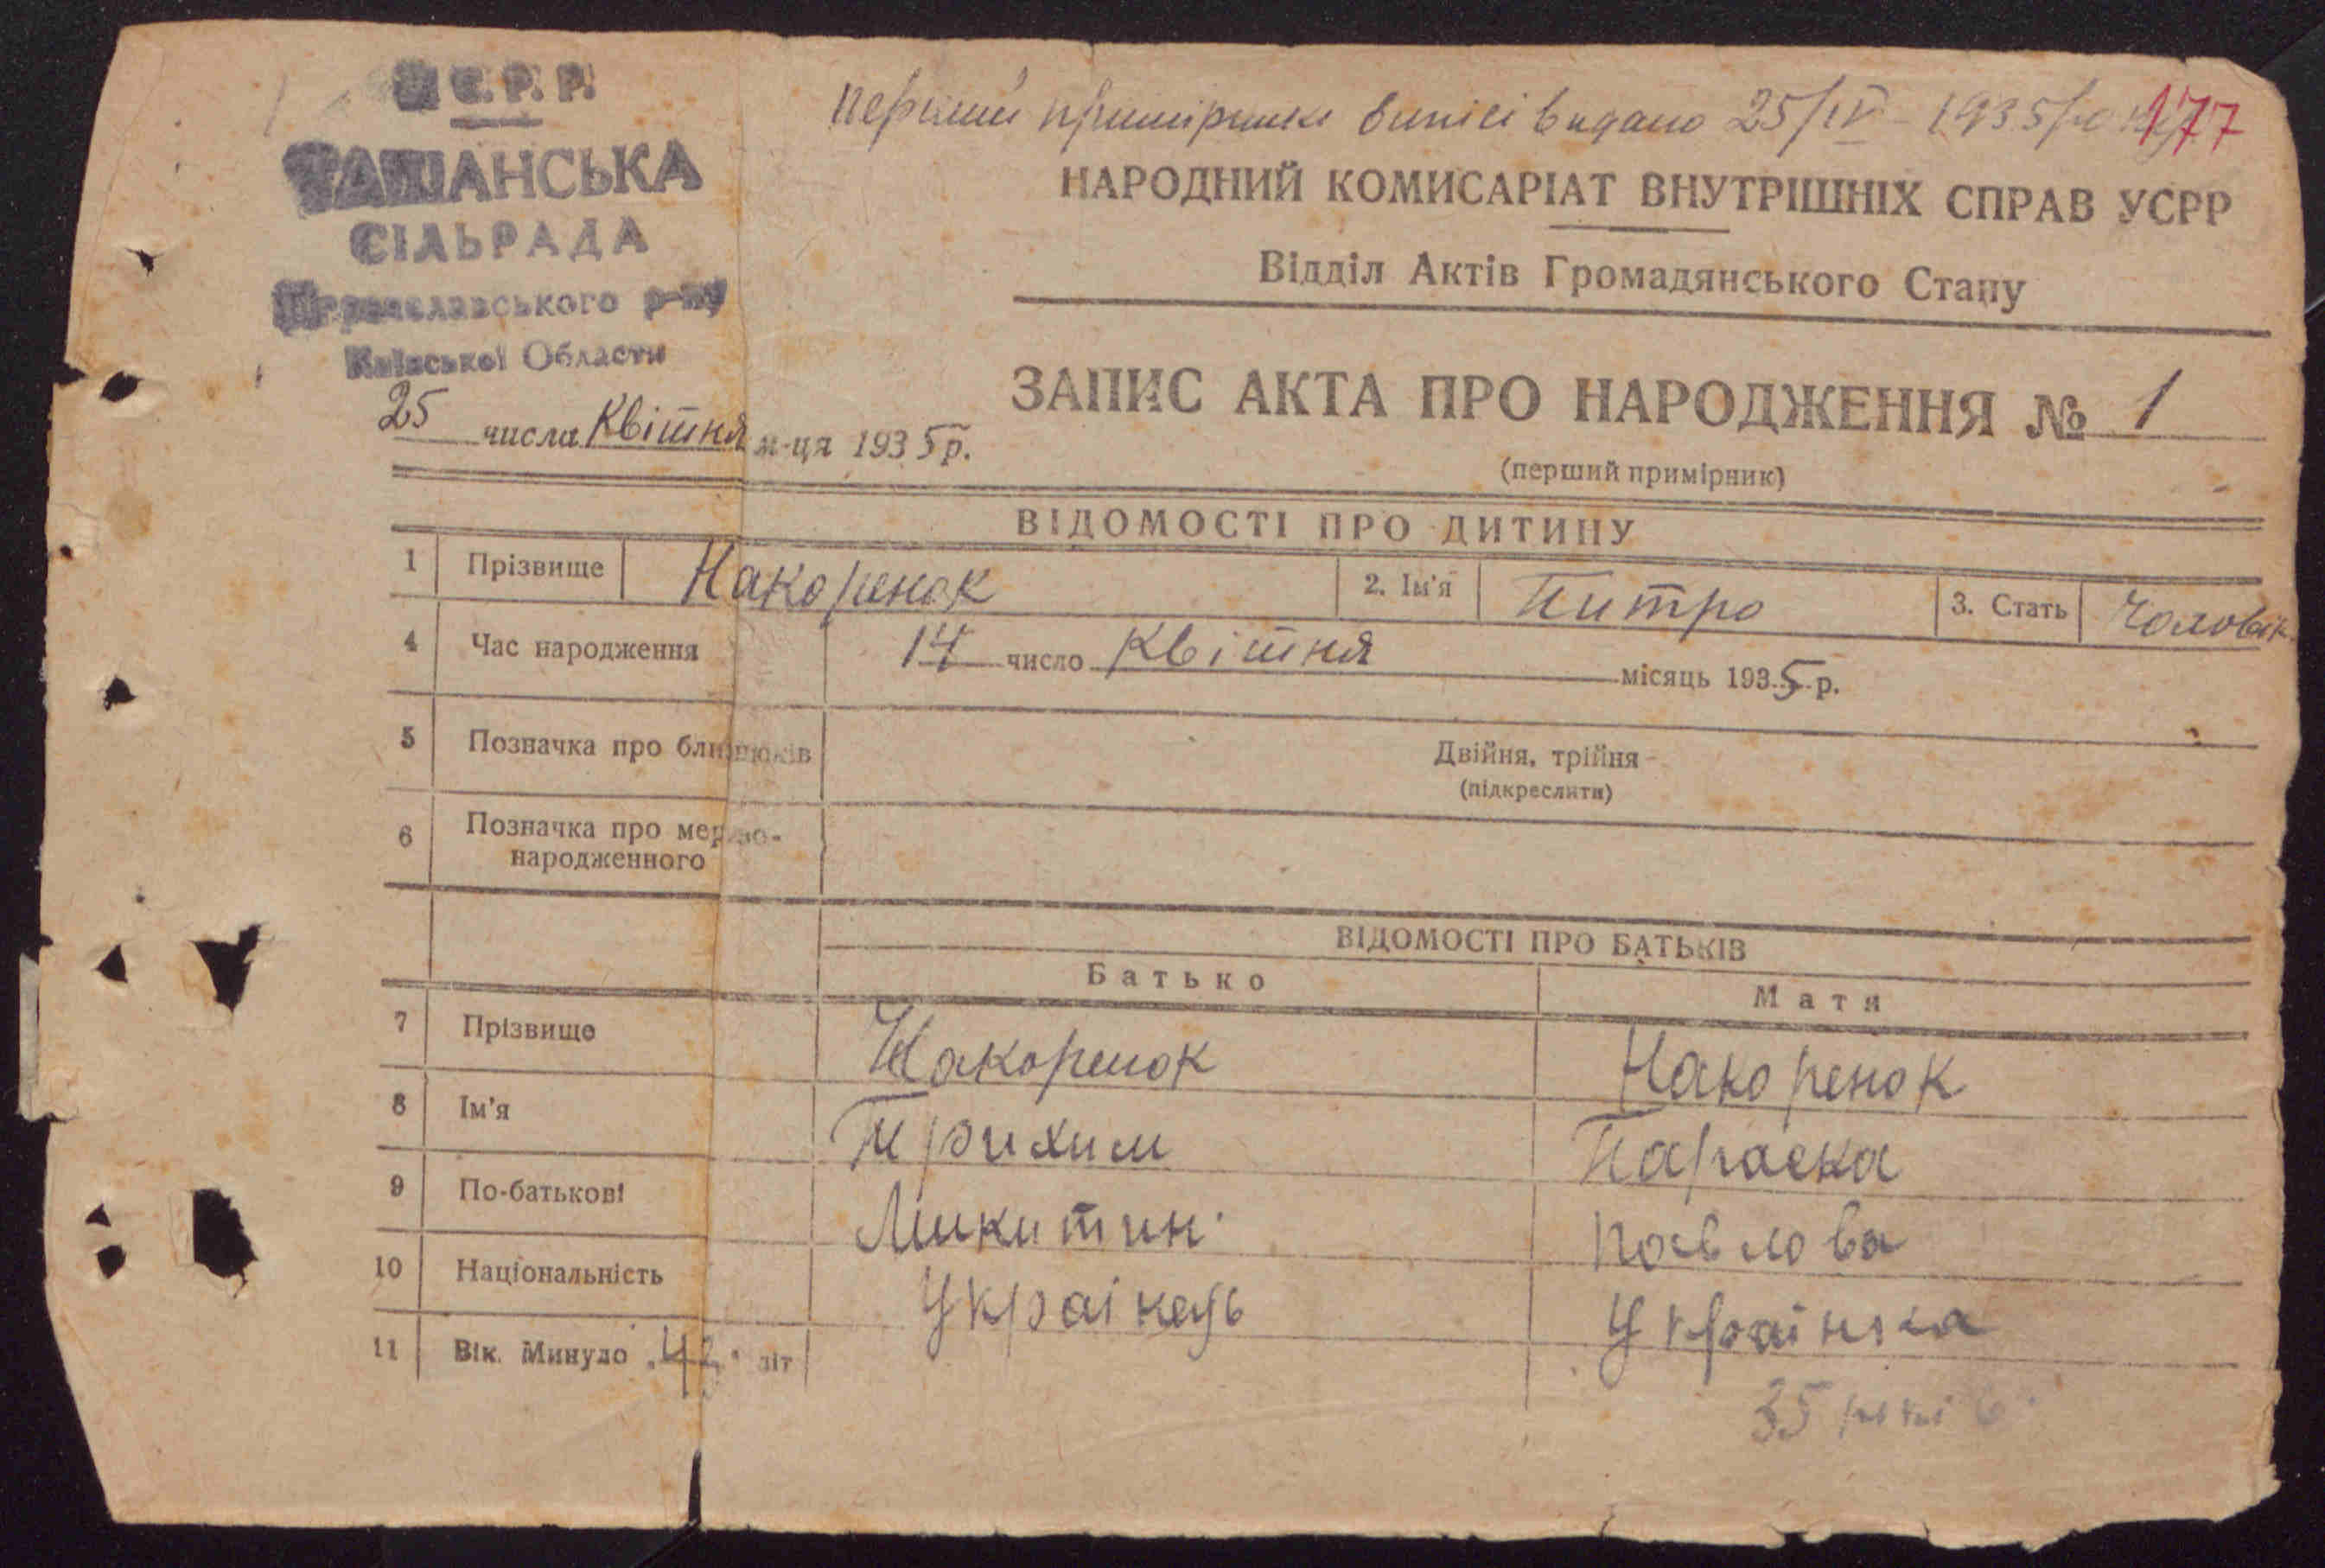 У.С.Р.Р.
ТАШАНСЬКА
СІЛЬРАДА
Переяславського р-ну
Київської Области
25 числа Квітня м-ця 1935 р.
перший примірник виписі видано 25/IV - 1935 року
177
НАРОДНИЙ КОМИСАРІАТ ВНУТРІШНІХ СПРАВ УСРР
Відділ Актів Громадянського Стану
ЗАПИС АКТА ПРО НАРОДЖЕННЯ № 1
(перший примірник)
ВІДОМОСТІ ПРО ДИТИНУ
1 Прізвище Накоренок 2. Ім'я Питро 3. Стать Чоловік
4 Час народження 14 число Квітня місяць 1935 р.
5 Позначка про близнюків Двійня, трійня
(підкреслити)
6 Позначка про мертво-
народженного
ВІДОМОСТІ ПРО БАТЬКІВ
Батько Мати
7 Прізвище Накоренок Накоренок
8 Ім'я Параска
9 По-батькові Микитин Павлова
10 Національність Украінець Украінка
11 Вік. Минуло 43 літ
35